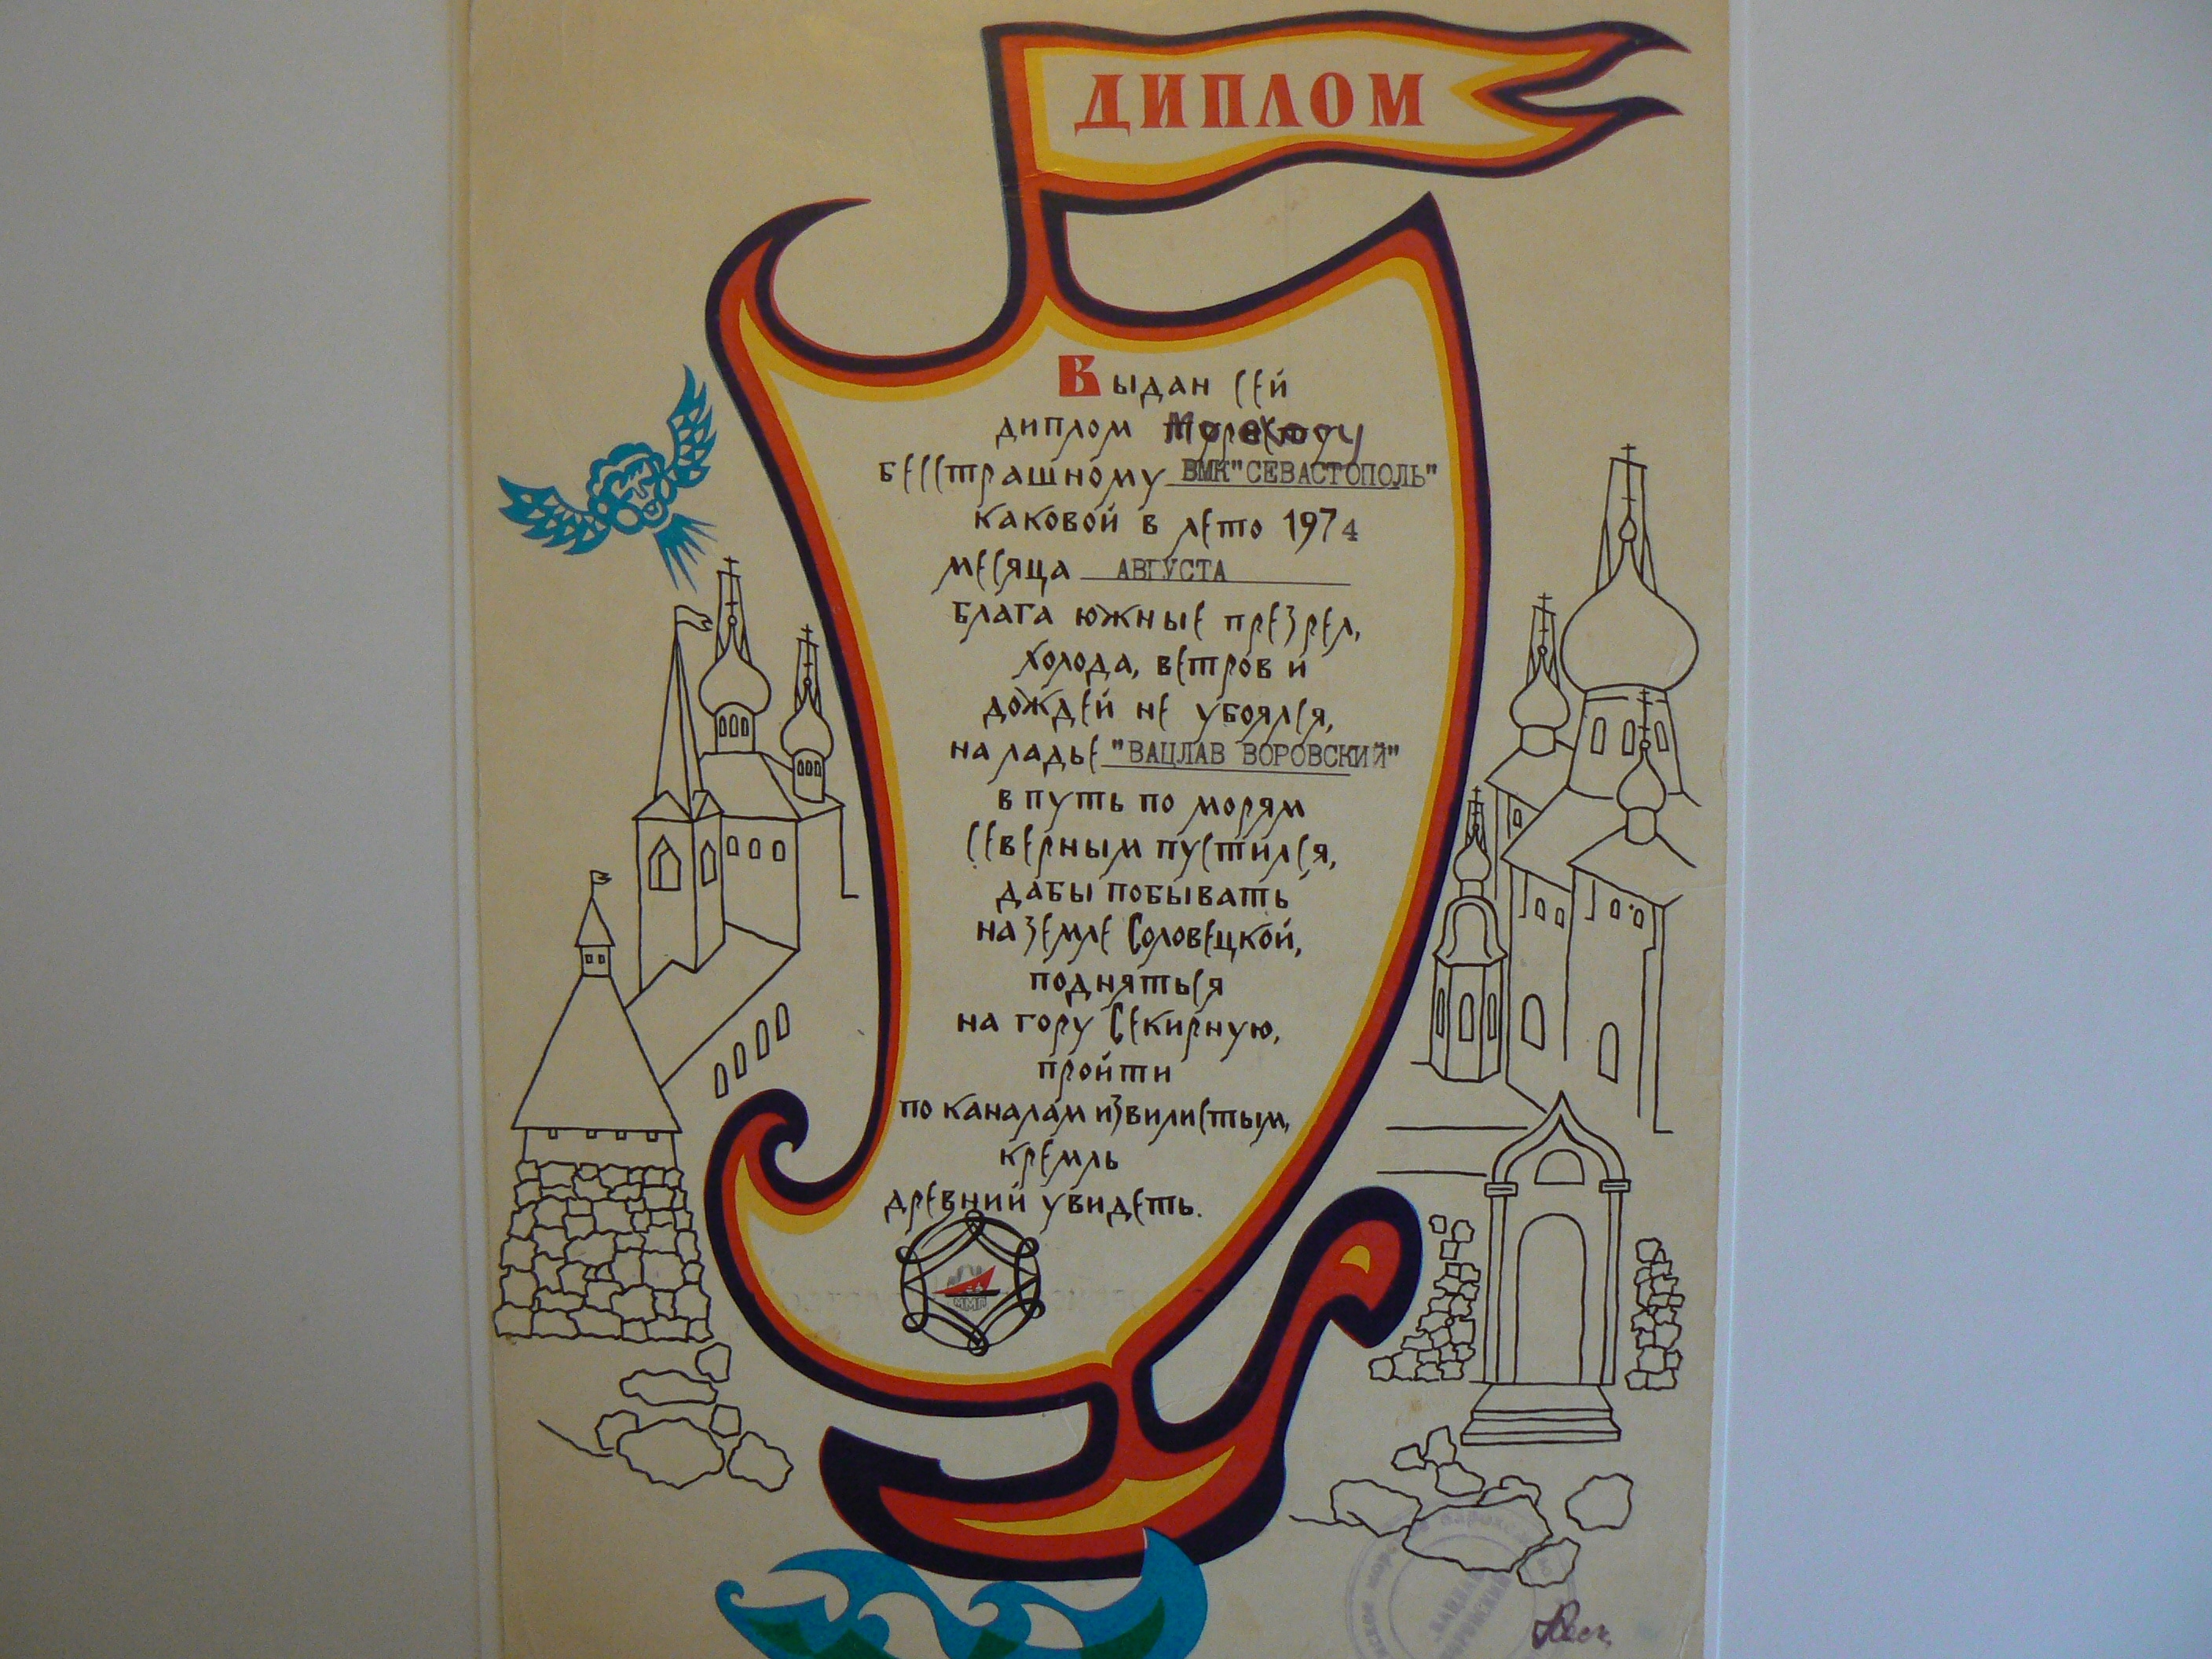 ДИПЛОМ
Выдан сей
диплом мореходу
бесстрашному ВМК "СЕВАСТОПОЛЬ"
каковой в лето 1974
месяца АВГУСТА
блага южные презрел,
холода, ветров и
дождей не убоялся,
на ладье "ВАЦЛАВ ВОРОВСКИЙ"
в путь по морям
северным пустился,
дабы побывать
на земле Соловецкой,
подняться
на гору Секирную,
пройти
по каналам извилистым,
кремль
древний увидеть.
ММП